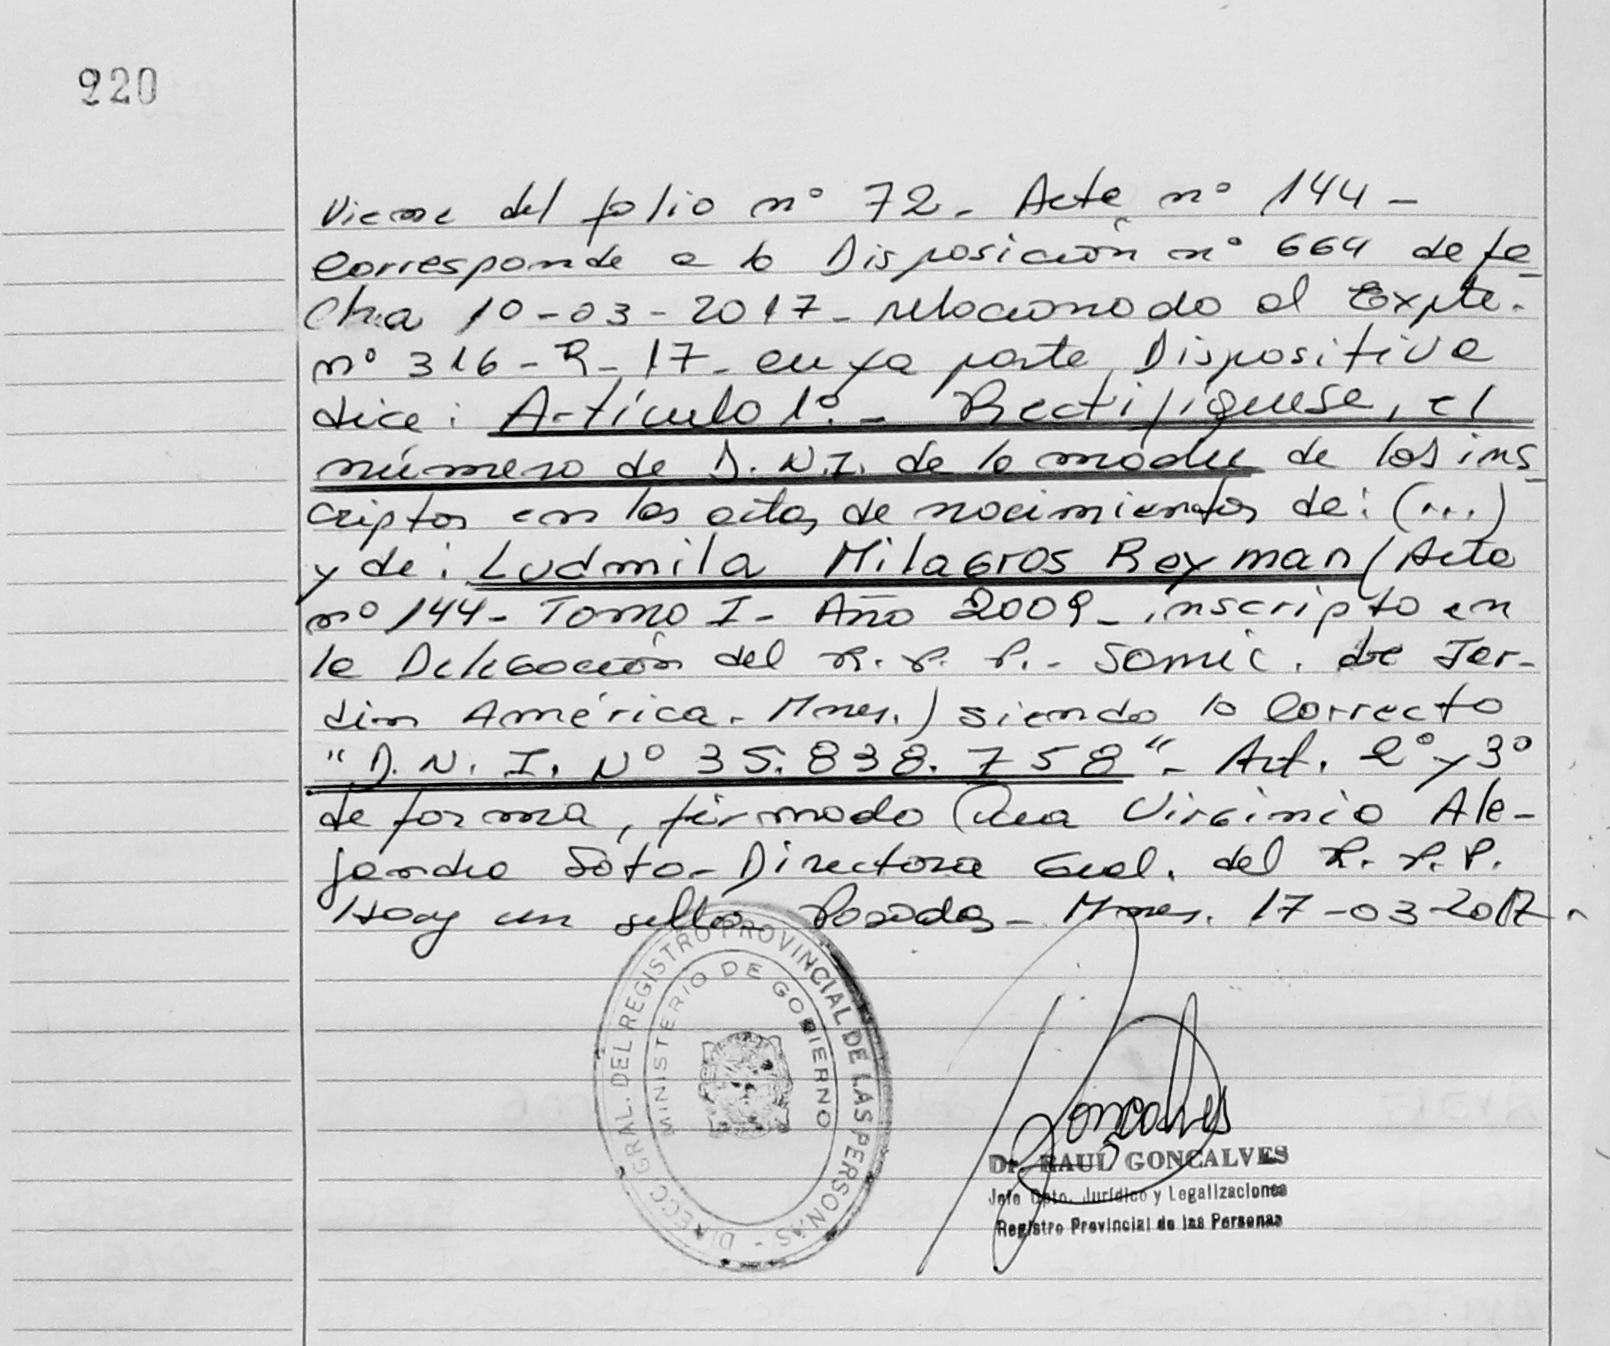 220
Viene del folio nº 72. Acta nº 144 -
Corresponde a la Disposición nº 664 de fe-
cha 10-03-2017 - relacionado al Expte.
nº 316-R-17 - cuya parte Dispositiva
dice: Artículo 1º.- Rectifíquese, el
número de D.N.I. de la madre de los ins-
criptos en las actas de nacimientos de: (...)
y de: Ludmila Milagros Reyman (Acta
nº 144- Tomo I- Año 2009- inscripto en
la Delegación del R.P.P.- Samic. de Jar-
din América. Mnes.) siendo lo Correcto
"D.N.I. Nº 35.838.758"- Art. 2º y 3º
de forma, firmado Virginia Ale-
jandra Soto- Directora Gral. del R.P.P.
Hay un sello. Posadas- Mnes. 17-03-2017-
DIRECC. GRAL. DEL REGISTRO PROVINCIAL DE LAS PERSONAS -
MINISTERIO DE GOBIERNO
Gonçalves
Dr. RAUL GONCALVES
Jefe Dpto. Jurídico y Legalizaciones
Registro Provincial de las Personas